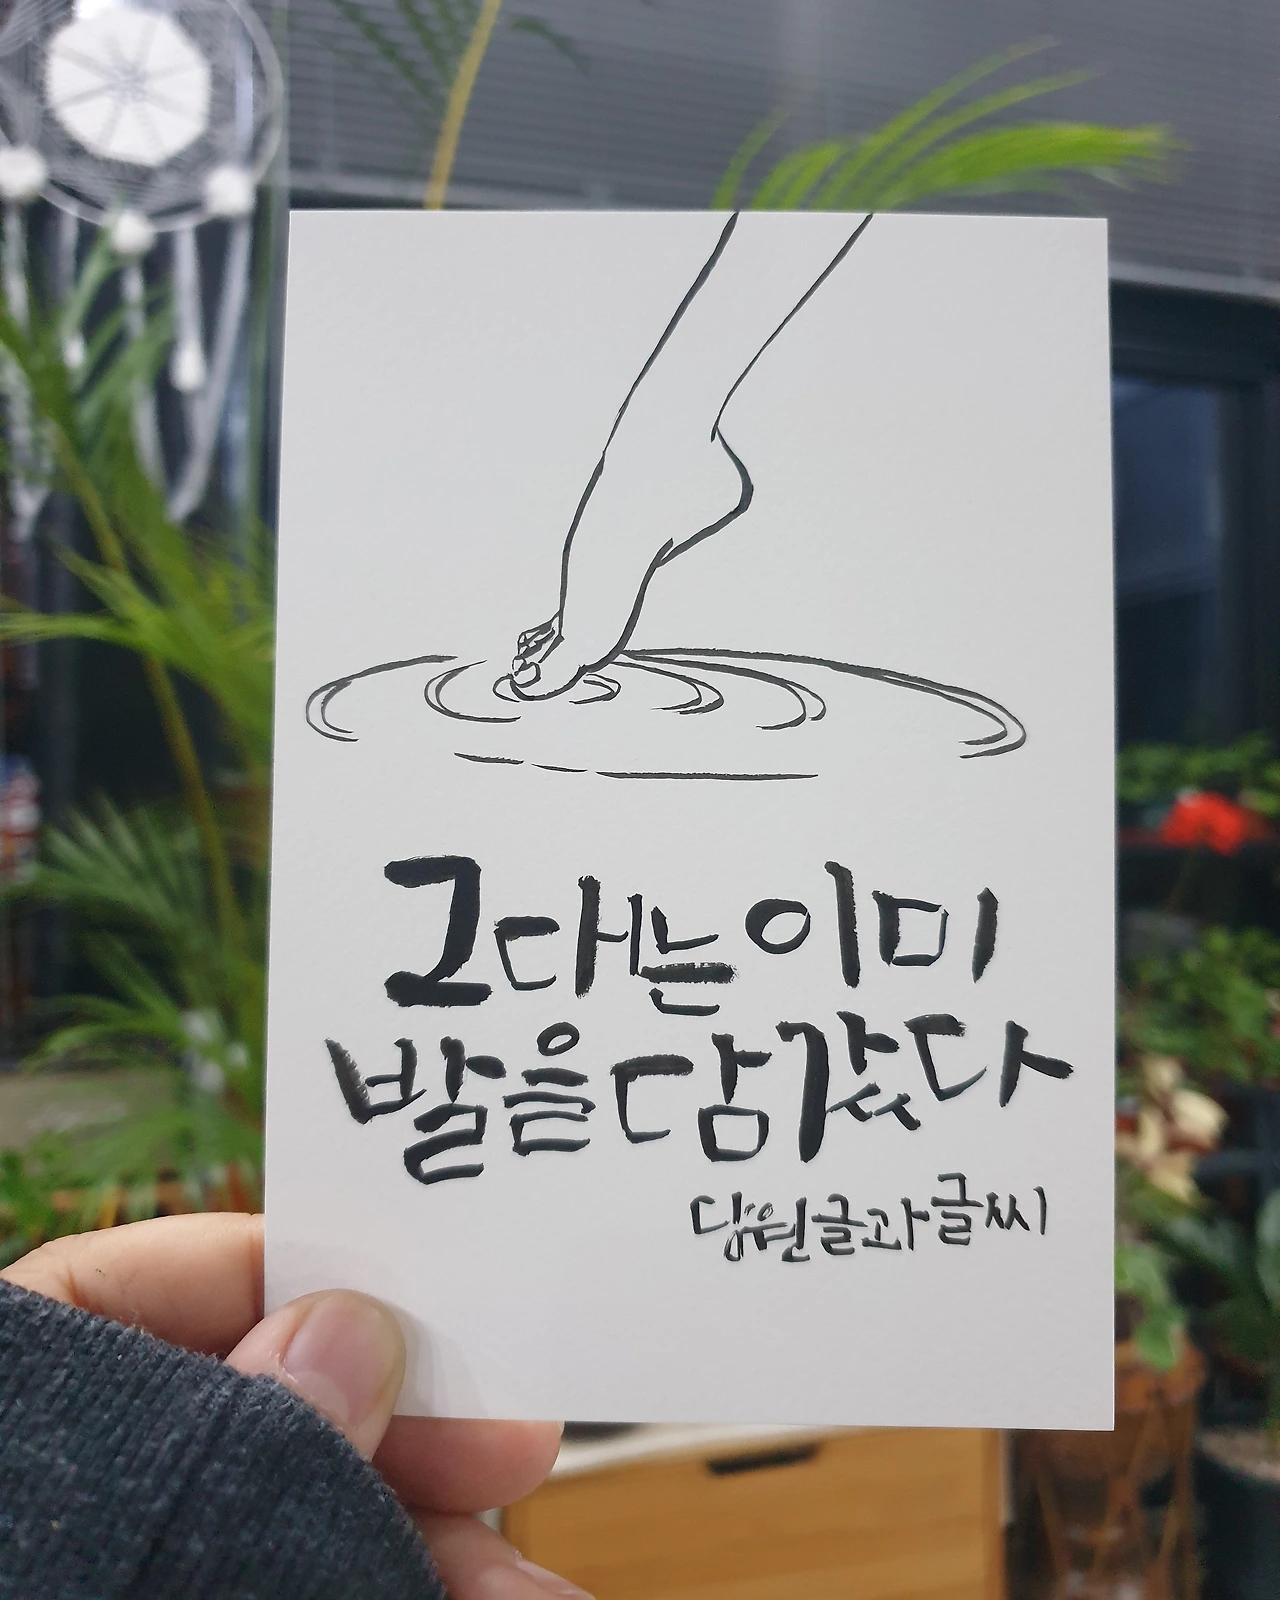 그대는 이미
발을 담갔다
담원글과글씨